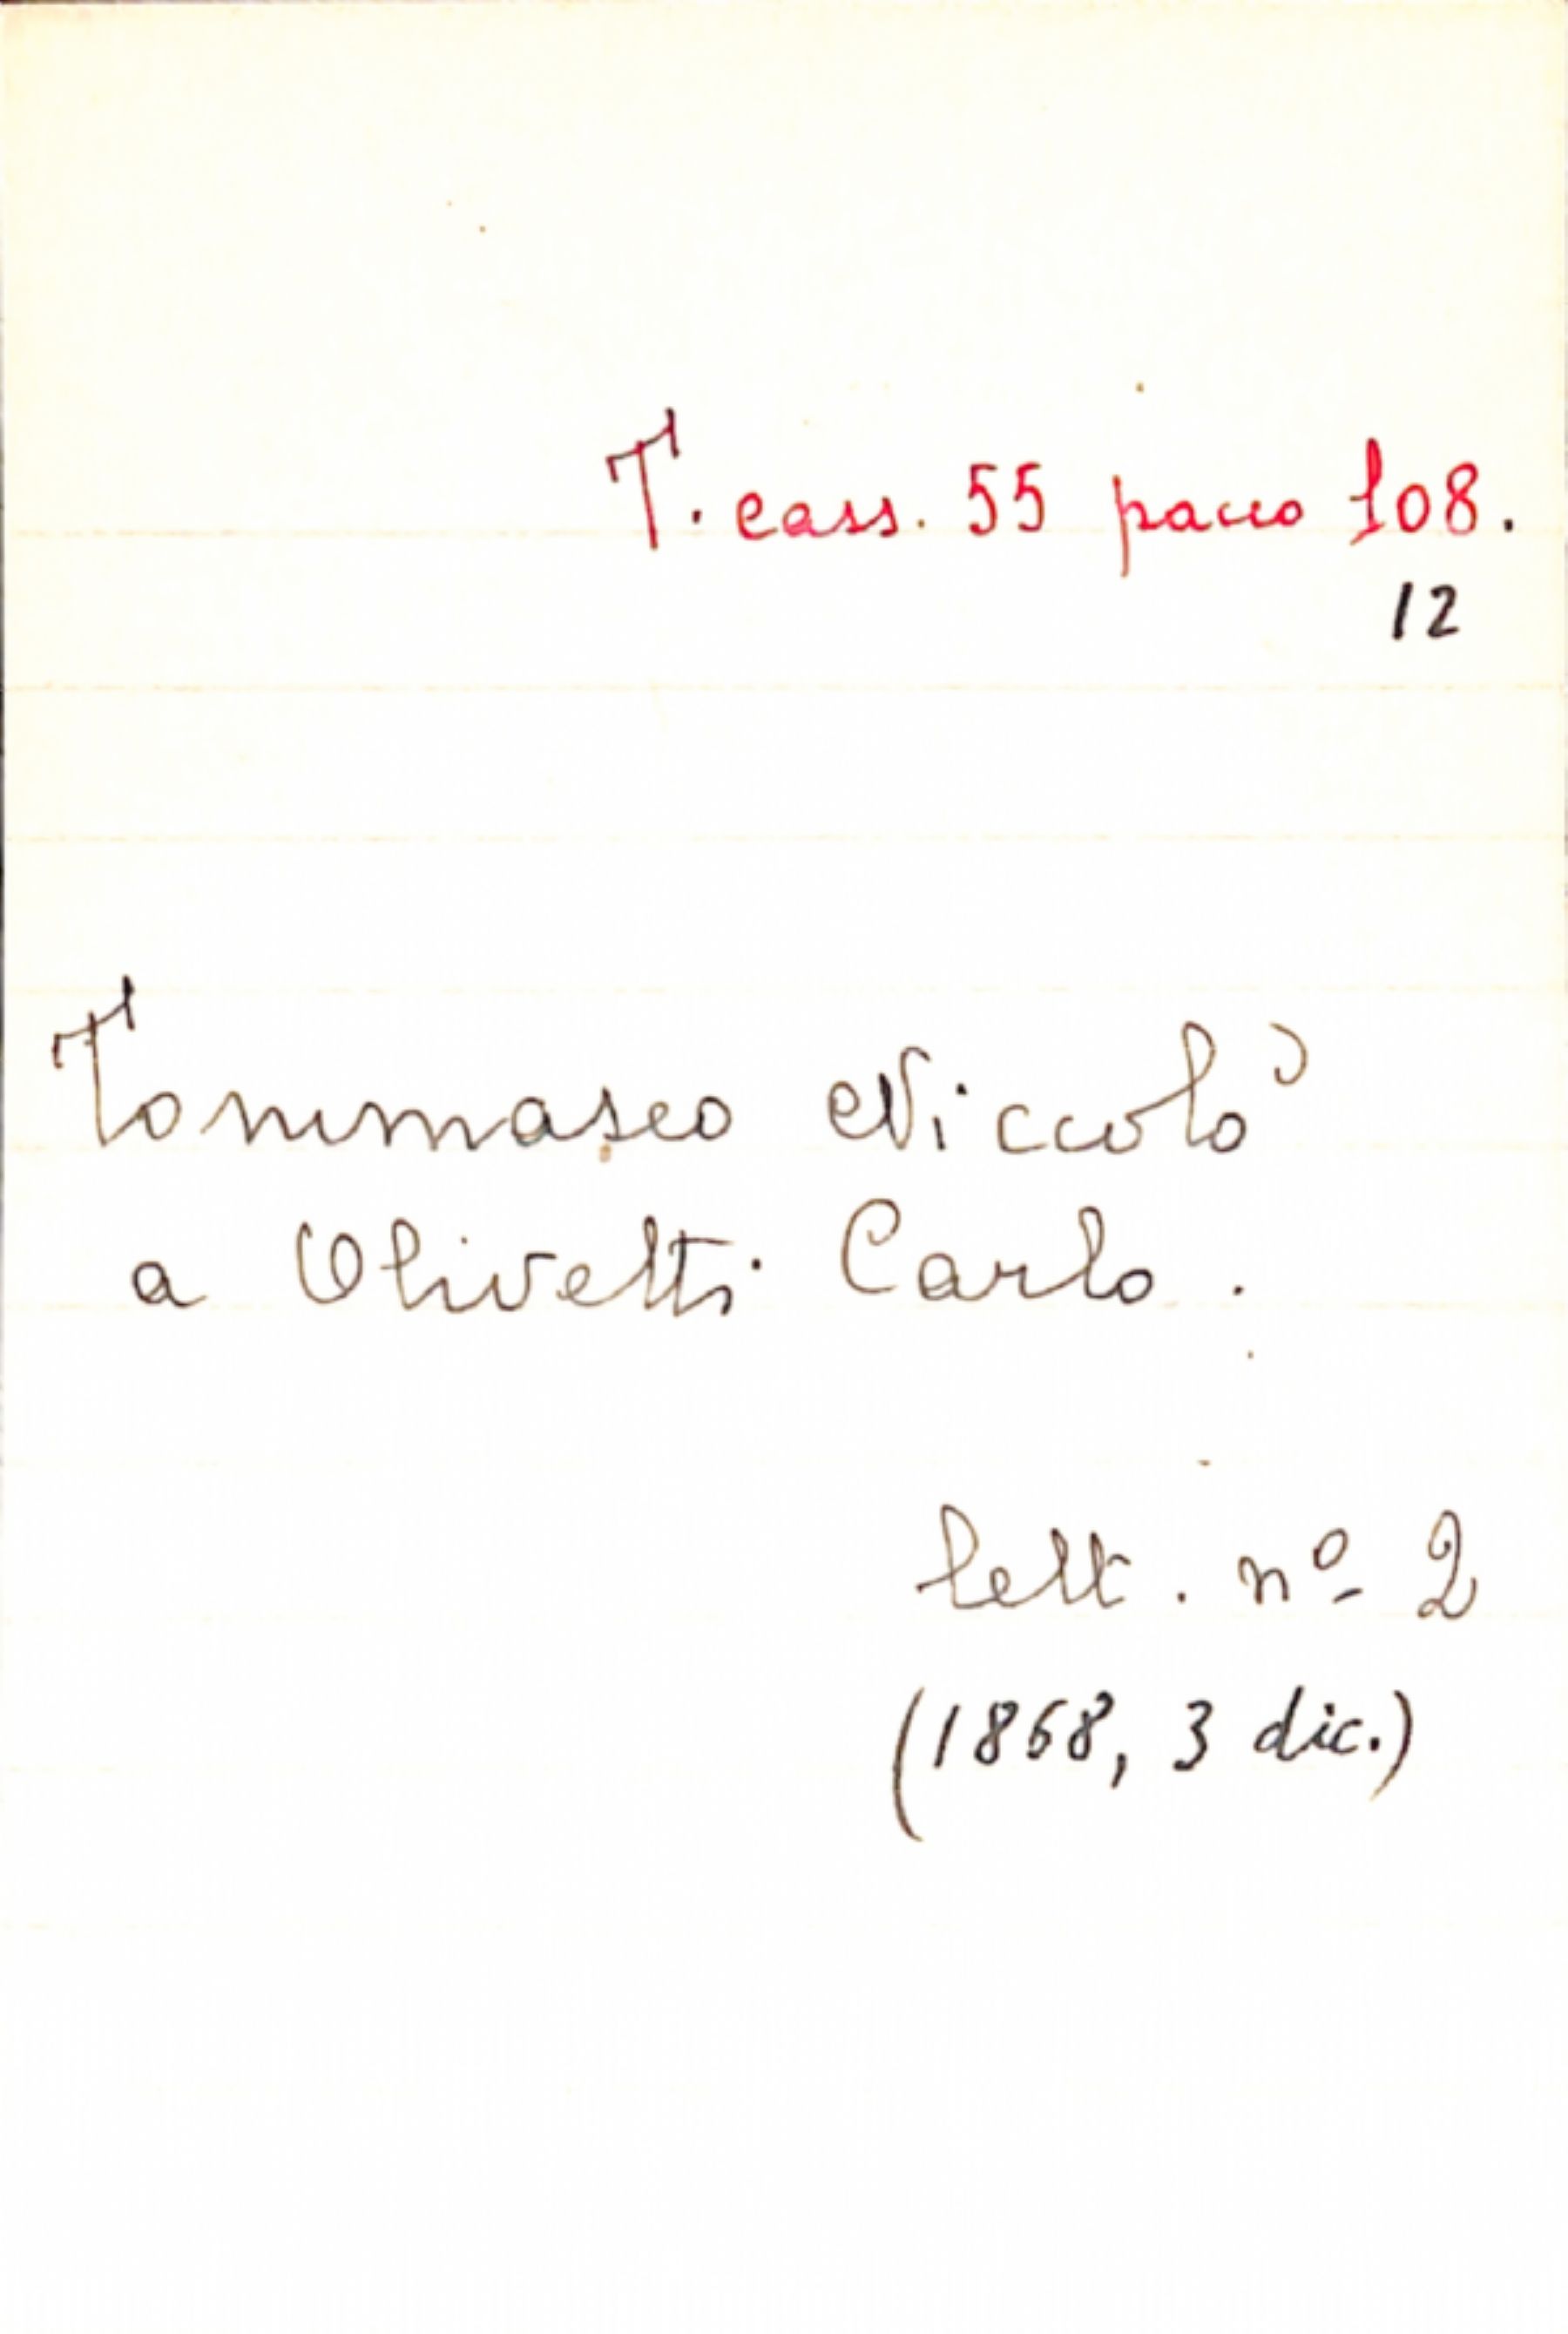 T. cass. 55 pacco 108.
12
Tommaseo Niccolò
a Olivetti Carlo.
lett. nº 2
(1868, 3 dic.)